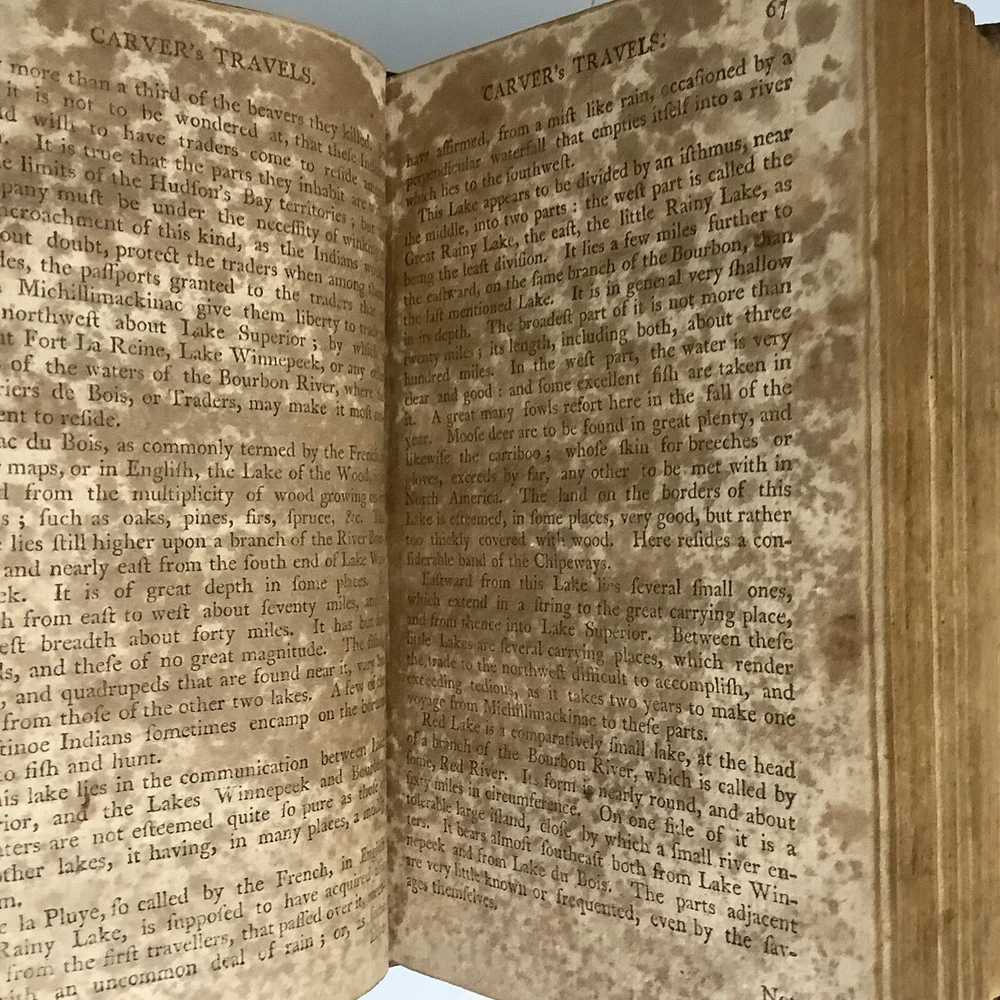 CARVER's TRAVELS.
more than a third of the beavers they killed.
it is not to be wondered at, that theſe
wiſh to have traders come to reſide
It is true that the parts they inhabit are
limits of the Hudſon's Bay territories ; but
pany muſt be under the neceſſity of
croachment of this kind, as the Indians
out doubt, protect the traders when among
des, the paſſports granted to the traders that
Michillimackinac give them liberty to
northweſt about Lake Superior ; by which
Fort La Reine, Lake Winnepeek, or any
of the waters of the Bourbon River, where
riers de Bois, or Traders, may make it moſt
ent to reſide.
ac du Bois, as commonly termed by the French
maps, or in Engliſh, the Lake of the Wood,
from the multiplicity of wood growing
s ; ſuch as oaks, pines, firs, ſpruce, &c.
lies ſtill higher upon a branch of the River
and nearly eaſt from the ſouth end of Lake
ck. It is of great depth in ſome places.
h from eaſt to weſt about ſeventy miles, and
eſt breadth about forty miles. It has but
ds, and theſe of no great magnitude. The
, and quadrupeds that are found near it, vary
from thoſe of the other two lakes. A few of the
tinoe Indians ſometimes encamp on the
to fiſh and hunt.
his lake lies in the communication between
rior, and the Lakes Winnepeek and
aters are not eſteemed quite ſo pure as thoſe
other lakes, it having, in many places, a
m.
la Pluye, ſo called by the French, in
Rainy Lake, is ſuppoſed to have acquired
from the firſt travellers, that paſſed over it,
with an uncommon deal of rain ; or, as
67
CARVER's TRAVELS.
have affirmed, from a miſt like rain, occaſioned by a
perpendicular waterfall that empties itſelf into a river
which lies to the ſouthweſt.
This Lake appears to be divided by an iſthmus, near
the middle, into two parts ; the weſt part is called the
Great Rainy Lake, the eaſt, the little Rainy Lake, as
being the leaſt diviſion. It lies a few miles further to
the eaſtward, on the ſame branch of the Bourbon, than
the laſt mentioned Lake. It is in general very ſhallow
in its depth. The broadeſt part of it is not more than
twenty miles ; its length, including both, about three
hundred miles. In the weſt part, the water is very
clear and good ; and ſome excellent fiſh are taken in
it. A great many fowls reſort here in the fall of the
year. Mooſe deer are to be found in great plenty, and
likewiſe the carriboo ; whoſe ſkin for breeches or
gloves, exceeds by far, any other to be met with in
North America. The land on the borders of this
Lake is eſteemed, in ſome places, very good, but rather
too thickly covered with wood. Here reſides a con-
ſiderable band of the Chipeways.
Eaſtward from this Lake lies ſeveral ſmall ones,
which extend in a ſtring to the great carrying place,
and from thence into Lake Superior. Between theſe
little Lakes are ſeveral carrying places, which render
the trade to the northweſt difficult to accompliſh, and
exceeding tedious, as it takes two years to make one
voyage from Michillimackinac to theſe parts.
Red Lake is a comparatively ſmall lake, at the head
of a branch of the Bourbon River, which is called by
ſome, Red River. Its form is nearly round, and about
ſixty miles in circumference. On one ſide of it is a
tolerable large iſland, cloſe by which a ſmall river en-
ters. It bears almoſt ſoutheaſt both from Lake Win-
nepeek and from Lake du Bois. The parts adjacent
are very little known or frequented, even by the ſav-
ages themſelves.